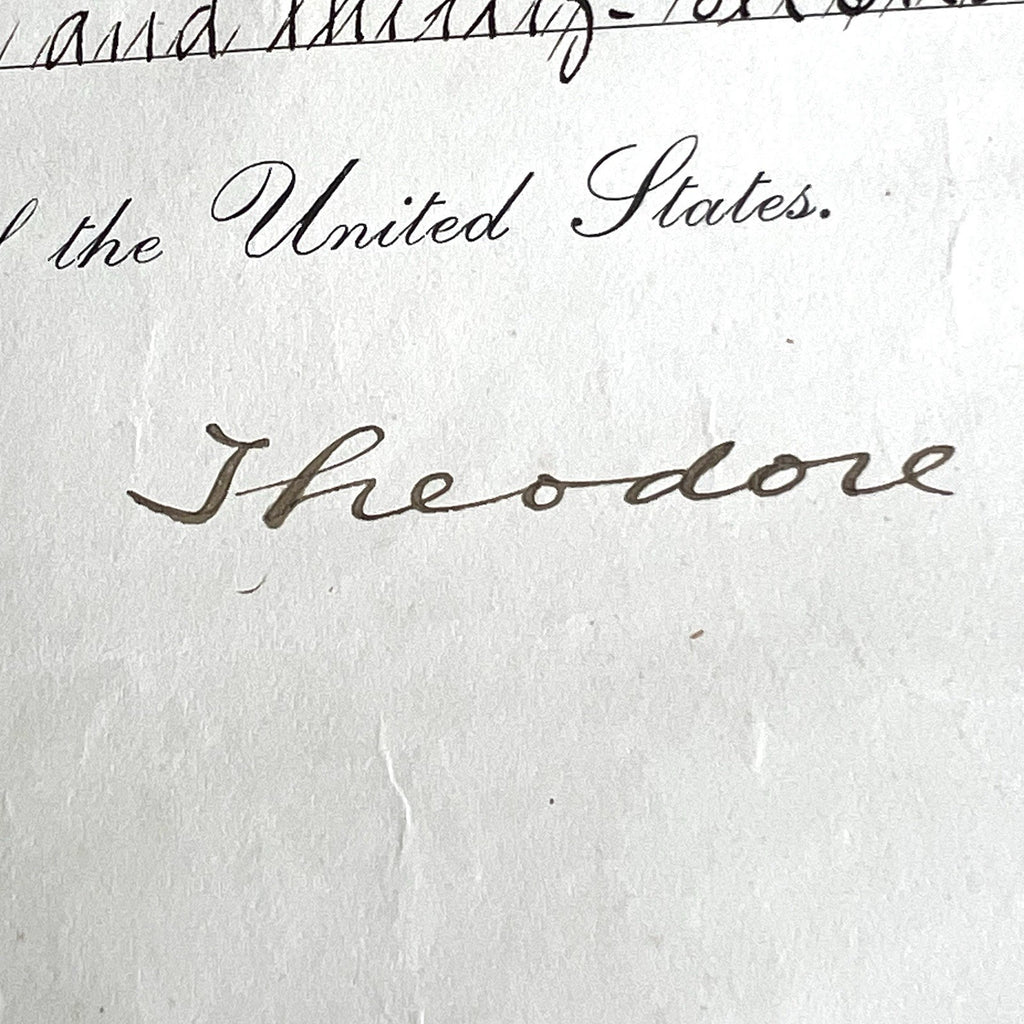 and thirty-
the United States.
Theodore